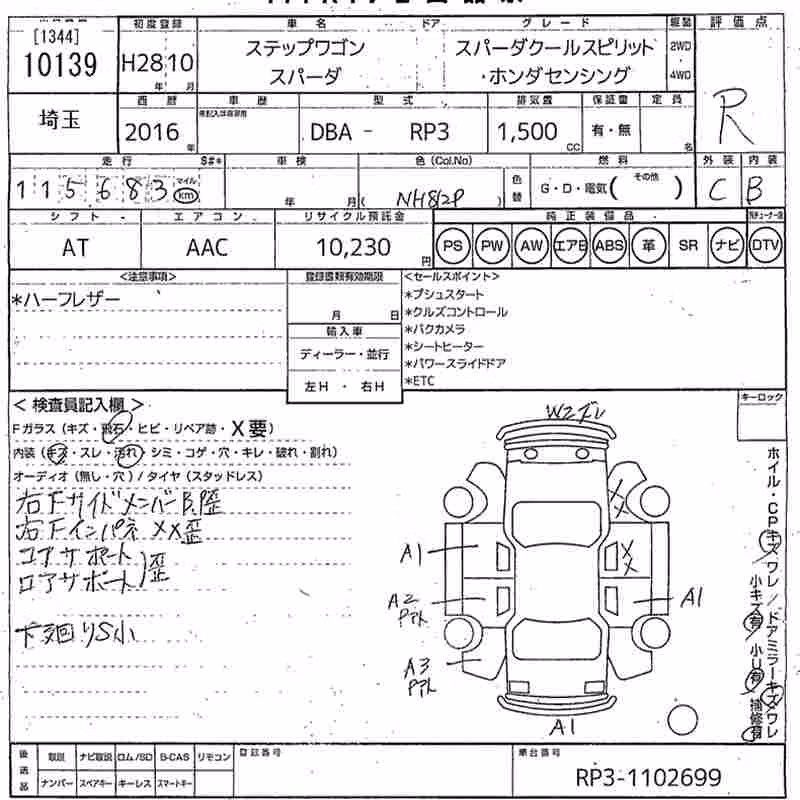 [1344]
10139
初度登録
H28 10
年 月
車名 ドア グレード
ステップワゴン
スパーダ
スパーダクールスピリット
・ホンダセンシング
2WD
・
4WD
評価点
R
埼玉
西暦
2016 年
車歴
型式
DBA - RP3
排気量
1,500 CC
保証書
有・無
定員
名
走行 $#*
115683
マイル
km
車検
年 月
色(Col.No)
( NH812P )
色替
燃料
G・D・電気( その他 )
外装 内装
C B
シフト
AT
エアコン
AAC
リサイクル預託金
10,230 円
純正装備品
PS PW AW エアB ABS 革 SR ナビ DTV
<注意事項>
*ハーフレザー
登録書類有効期限
月 日
輸入車
ディーラー・並行
左H ・ 右H
<セールスポイント>
*プシュスタート
*クルズコントロール
*バクカメラ
*シートヒーター
*パワースライドドア
*ETC
<検査員記入欄>
Fガラス(キズ・飛石・ヒビ・リペア跡・X要)
内装(キズ・スレ・汚れ・シミ・コゲ・穴・キレ・破れ・割れ)
オーディオ(無し・穴)/タイヤ(スタッドレス)
右Fサイドメンバー B,歪
右Fインパネ XX歪
コアサポート
ロアサポート)歪
下廻りS小
キーロック
W2ズレ
XX
A1
XX
A2
A1
A3
A1
ホイル・CPキズワレ/ドアミラーキズワレ
小キズ有 小U有 補修有
後送品
取説 ナビ取説 ロム/SD B-CAS リモコン
ナンバー スペアキー キーレス スマートキー
登録番号
車台番号
RP3-1102699